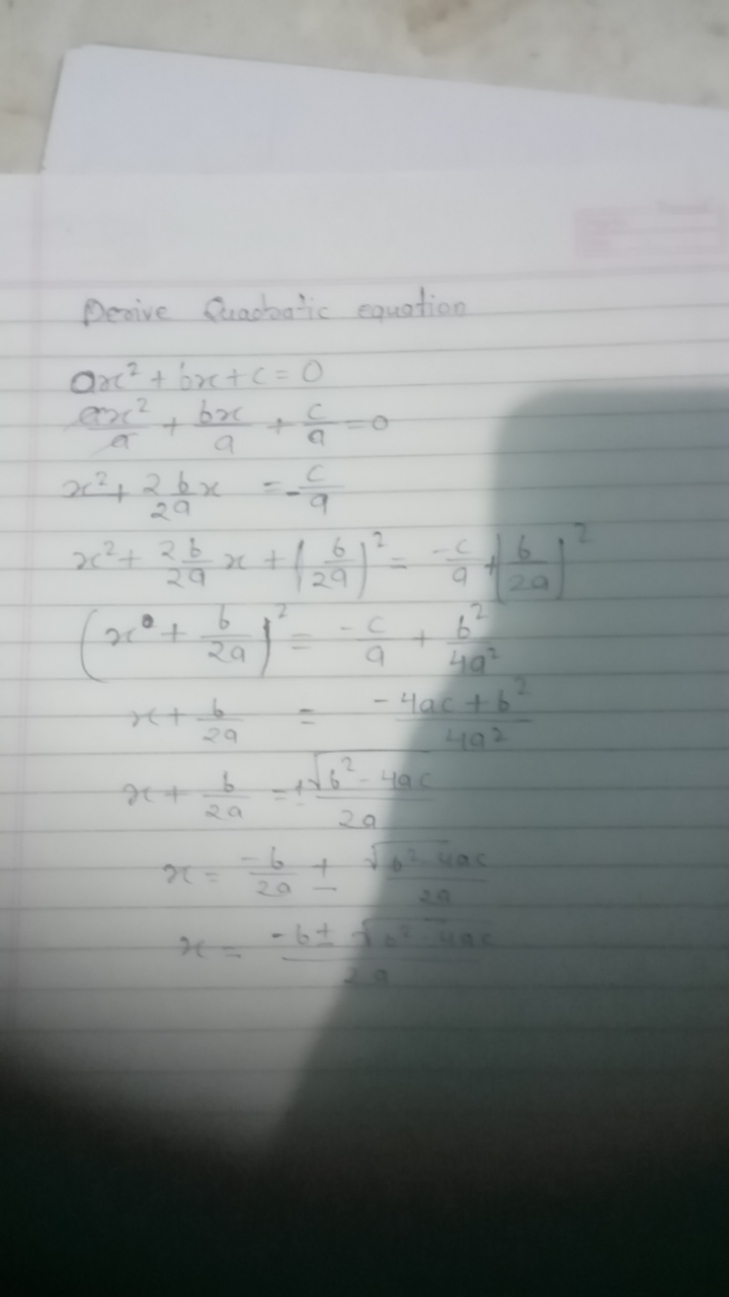 Derive Quadratic equation
ax² + bx + c = 0
ax²/a + bx/a + c/a = 0
x² + 2b/2a x = -c/a
x² + 2b/2a x + (b/2a)² = -c/a + (b/2a)²
(x + b/2a)² = -c/a + b²/4a²
x + b/2a = -4ac + b²/4a²
x + b/2a = ±√b² - 4ac/2a
x = -b/2a ± √b² - 4ac/2a
x = -b ± √b² - 4ac/2a